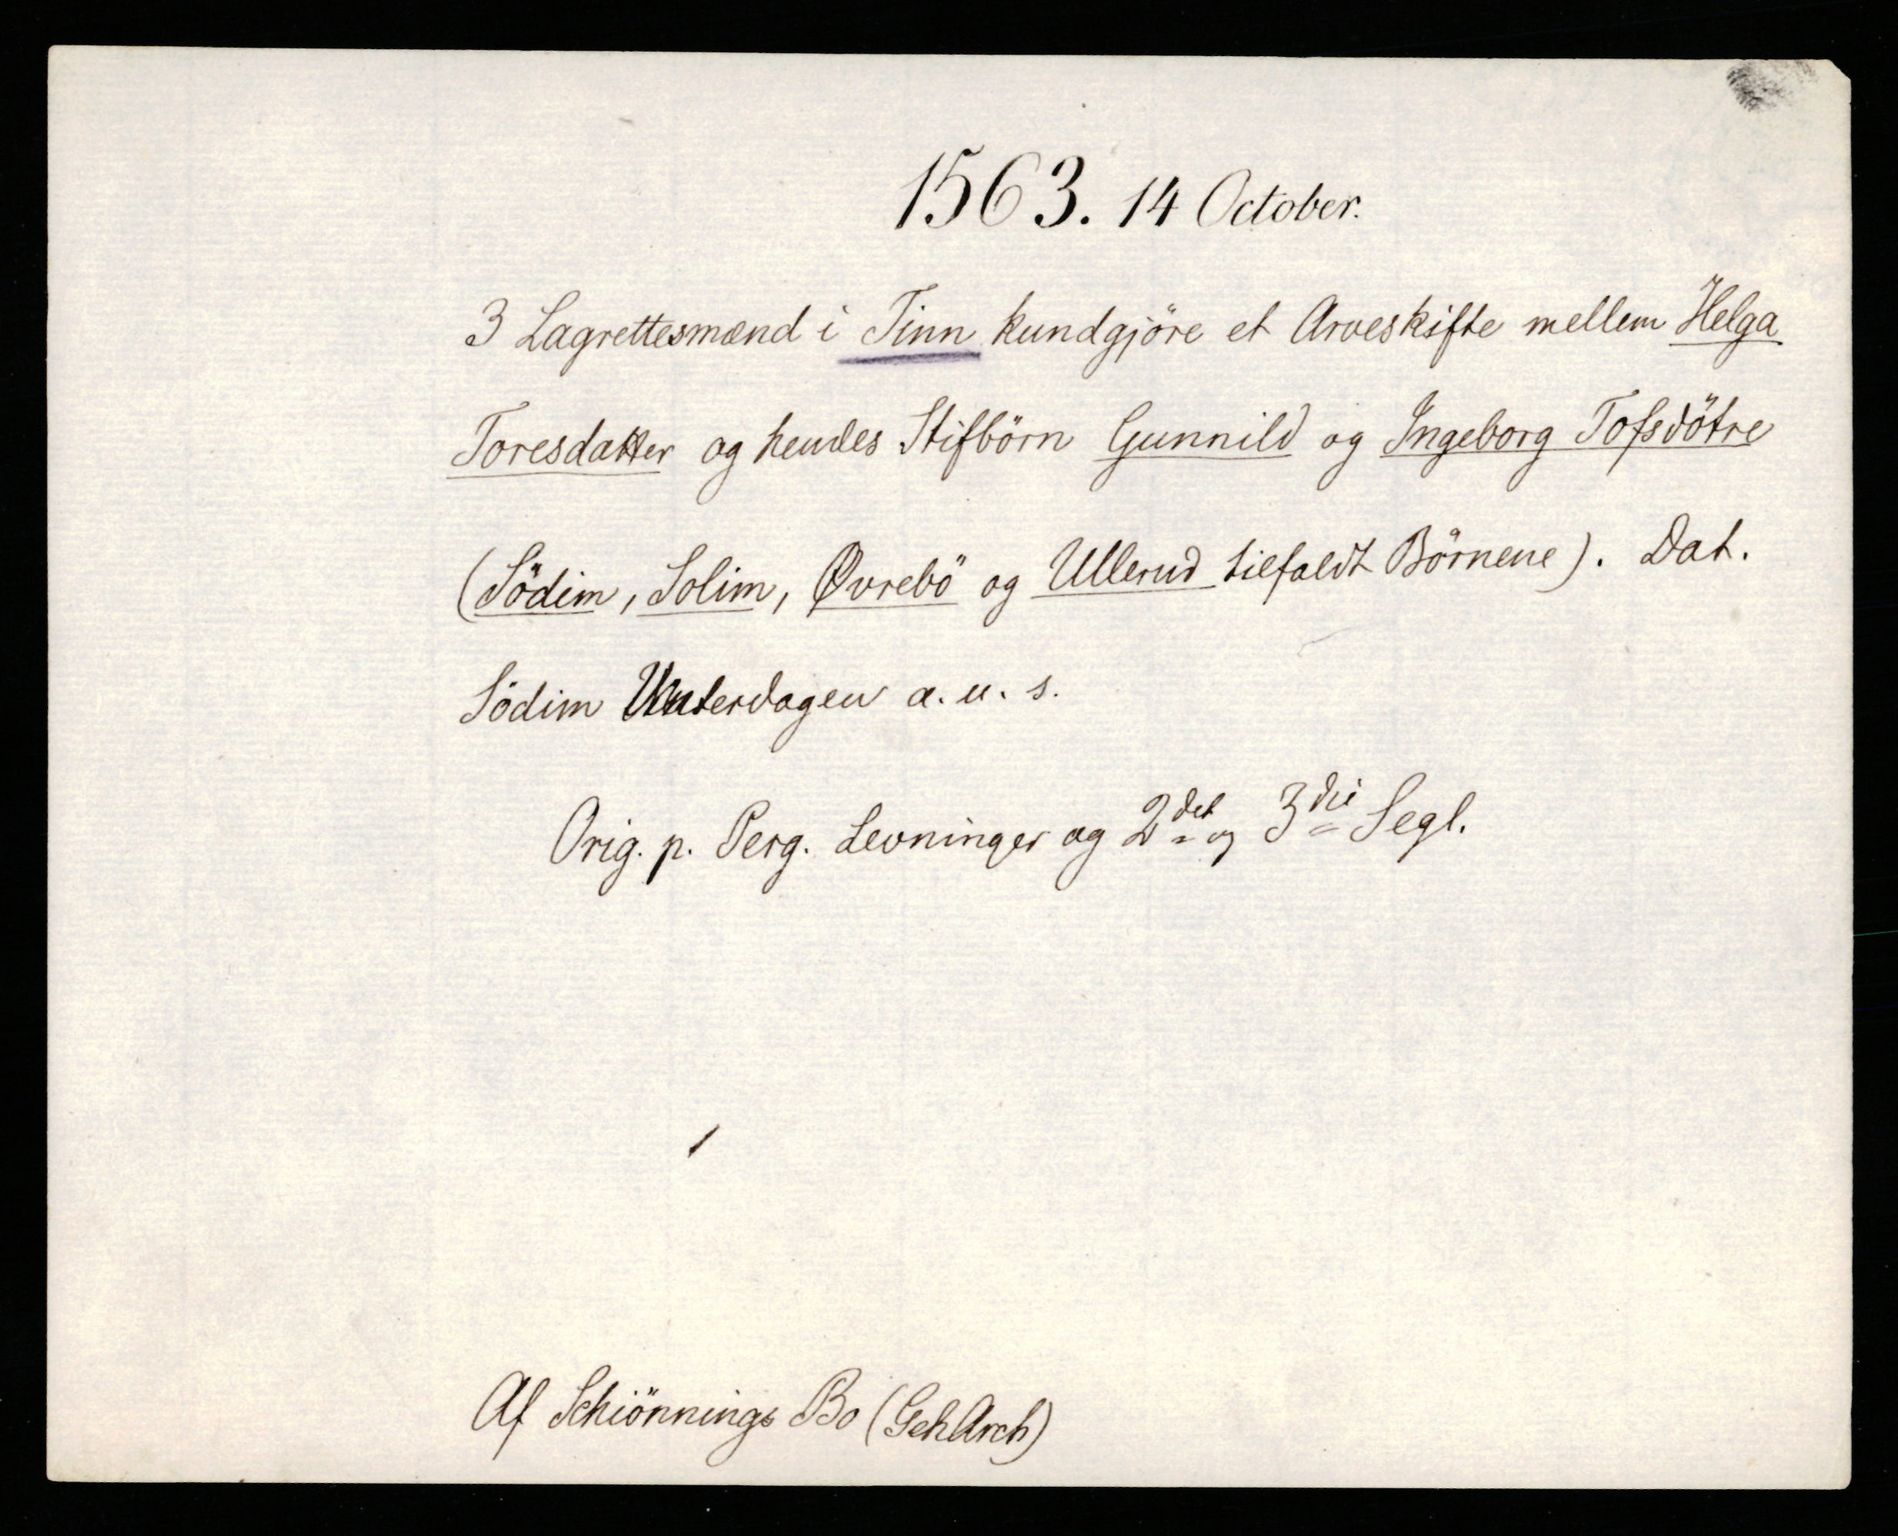 1563. 14 October.
3 Lagrettesmænd i Tinn kundgjöre et Arveskifte mellem Helga
Toresdatter og hendes Stifbörn Gunnild og Ingeborg Tofsdötre
(Södim, Solim, Øvrebö og Ullerud tilfaldt Börnene). Dat.
Södim a. u. s.
Orig. p. Perg. Levninger og 2det og 3die Segl.
Af Schiönnings Bo (GehArch)